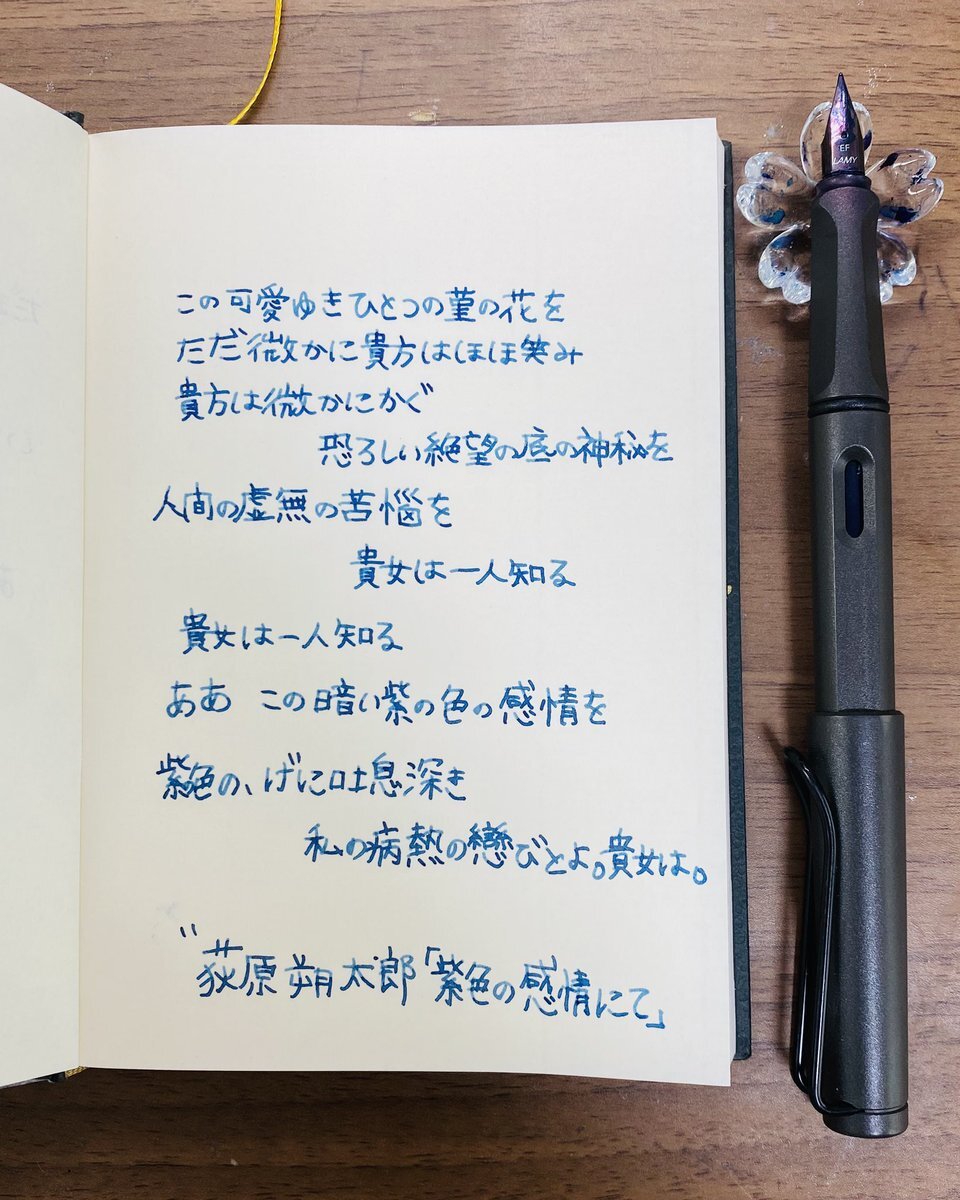 この可愛ゆきひとつの菫の花を
ただ微かに貴方はほほ笑み
貴方は微かにかぐ
恐ろしい絶望の底の神秘を
人間の虚無の苦悩を
貴女は一人知る
貴女は一人知る
ああ この暗い紫の色の感情を
紫色の、げに吐息深き
私の病熱の戀びとよ。貴女は。
荻原朔太郎「紫色の感情にて」
EF
LAMY